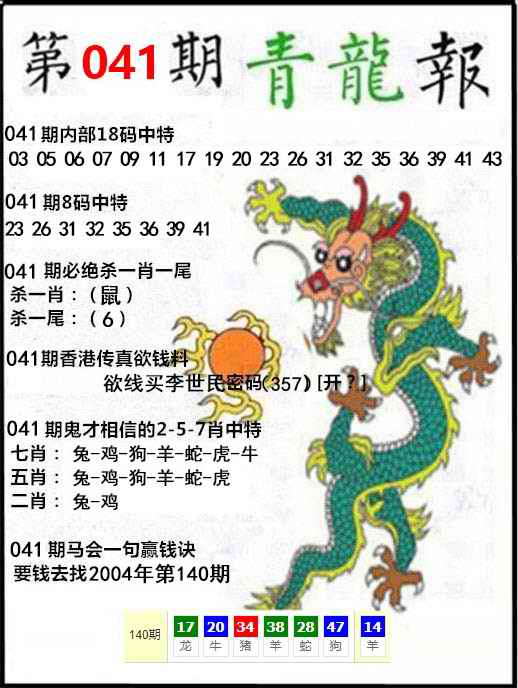 第041期青龍報
041期内部18码中特
03 05 06 07 09 11 17 19 20 23 26 31 32 35 36 39 41 43
041期8码中特
23 26 31 32 35 36 39 41
041期必绝杀一肖一尾
杀一肖：(鼠)
杀一尾：(6)
041期香港传真欲钱料
欲线买李世民密码(357)[开?]
041期鬼才相信的2-5-7肖中特
七肖：兔-鸡-狗-羊-蛇-虎-牛
五肖：兔-鸡-狗-羊-蛇-虎
二肖：兔-鸡
041期马会一句赢钱诀
要钱去找2004年第140期
140期 17 20 34 38 28 47 14
龙 牛 猪 羊 蛇 狗 羊